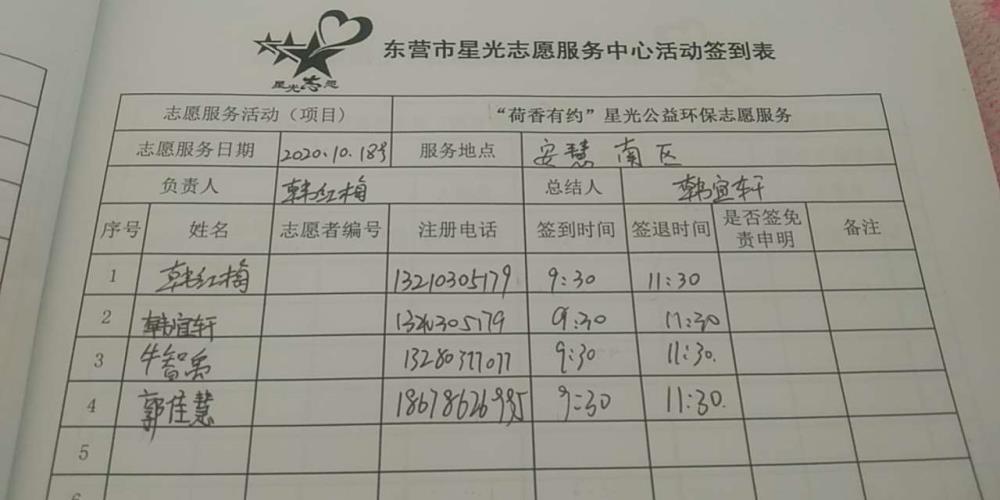 星光志愿
东营市星光志愿服务中心活动签到表
志愿服务活动（项目） “荷香有约”星光公益环保志愿服务
志愿服务日期 2020.10.18号 服务地点 安慧南区
负责人 韩红梅 总结人 韩宜轩
序号 姓名 志愿者编号 注册电话 签到时间 签退时间 是否签免责申明 备注
1 韩红梅 13210305179 9:30 11:30
2 韩宜轩 9:30 11:30
3 牛智禹 13280377077 9:30 11:30.
4 郭佳慧 9:30 11:30.
5
6